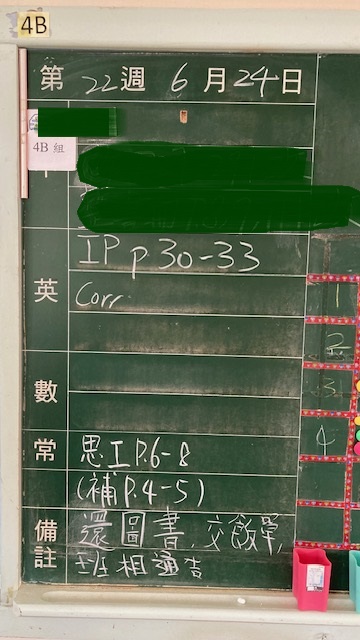 4B
第 22 週 6 月 24 日
4B 組
IP p 30-33
英 Corr
1
2
數
3
4
常 思工 P.6-8
(補 P.4-5)
備註 還圖書,交飯單,
班相通告